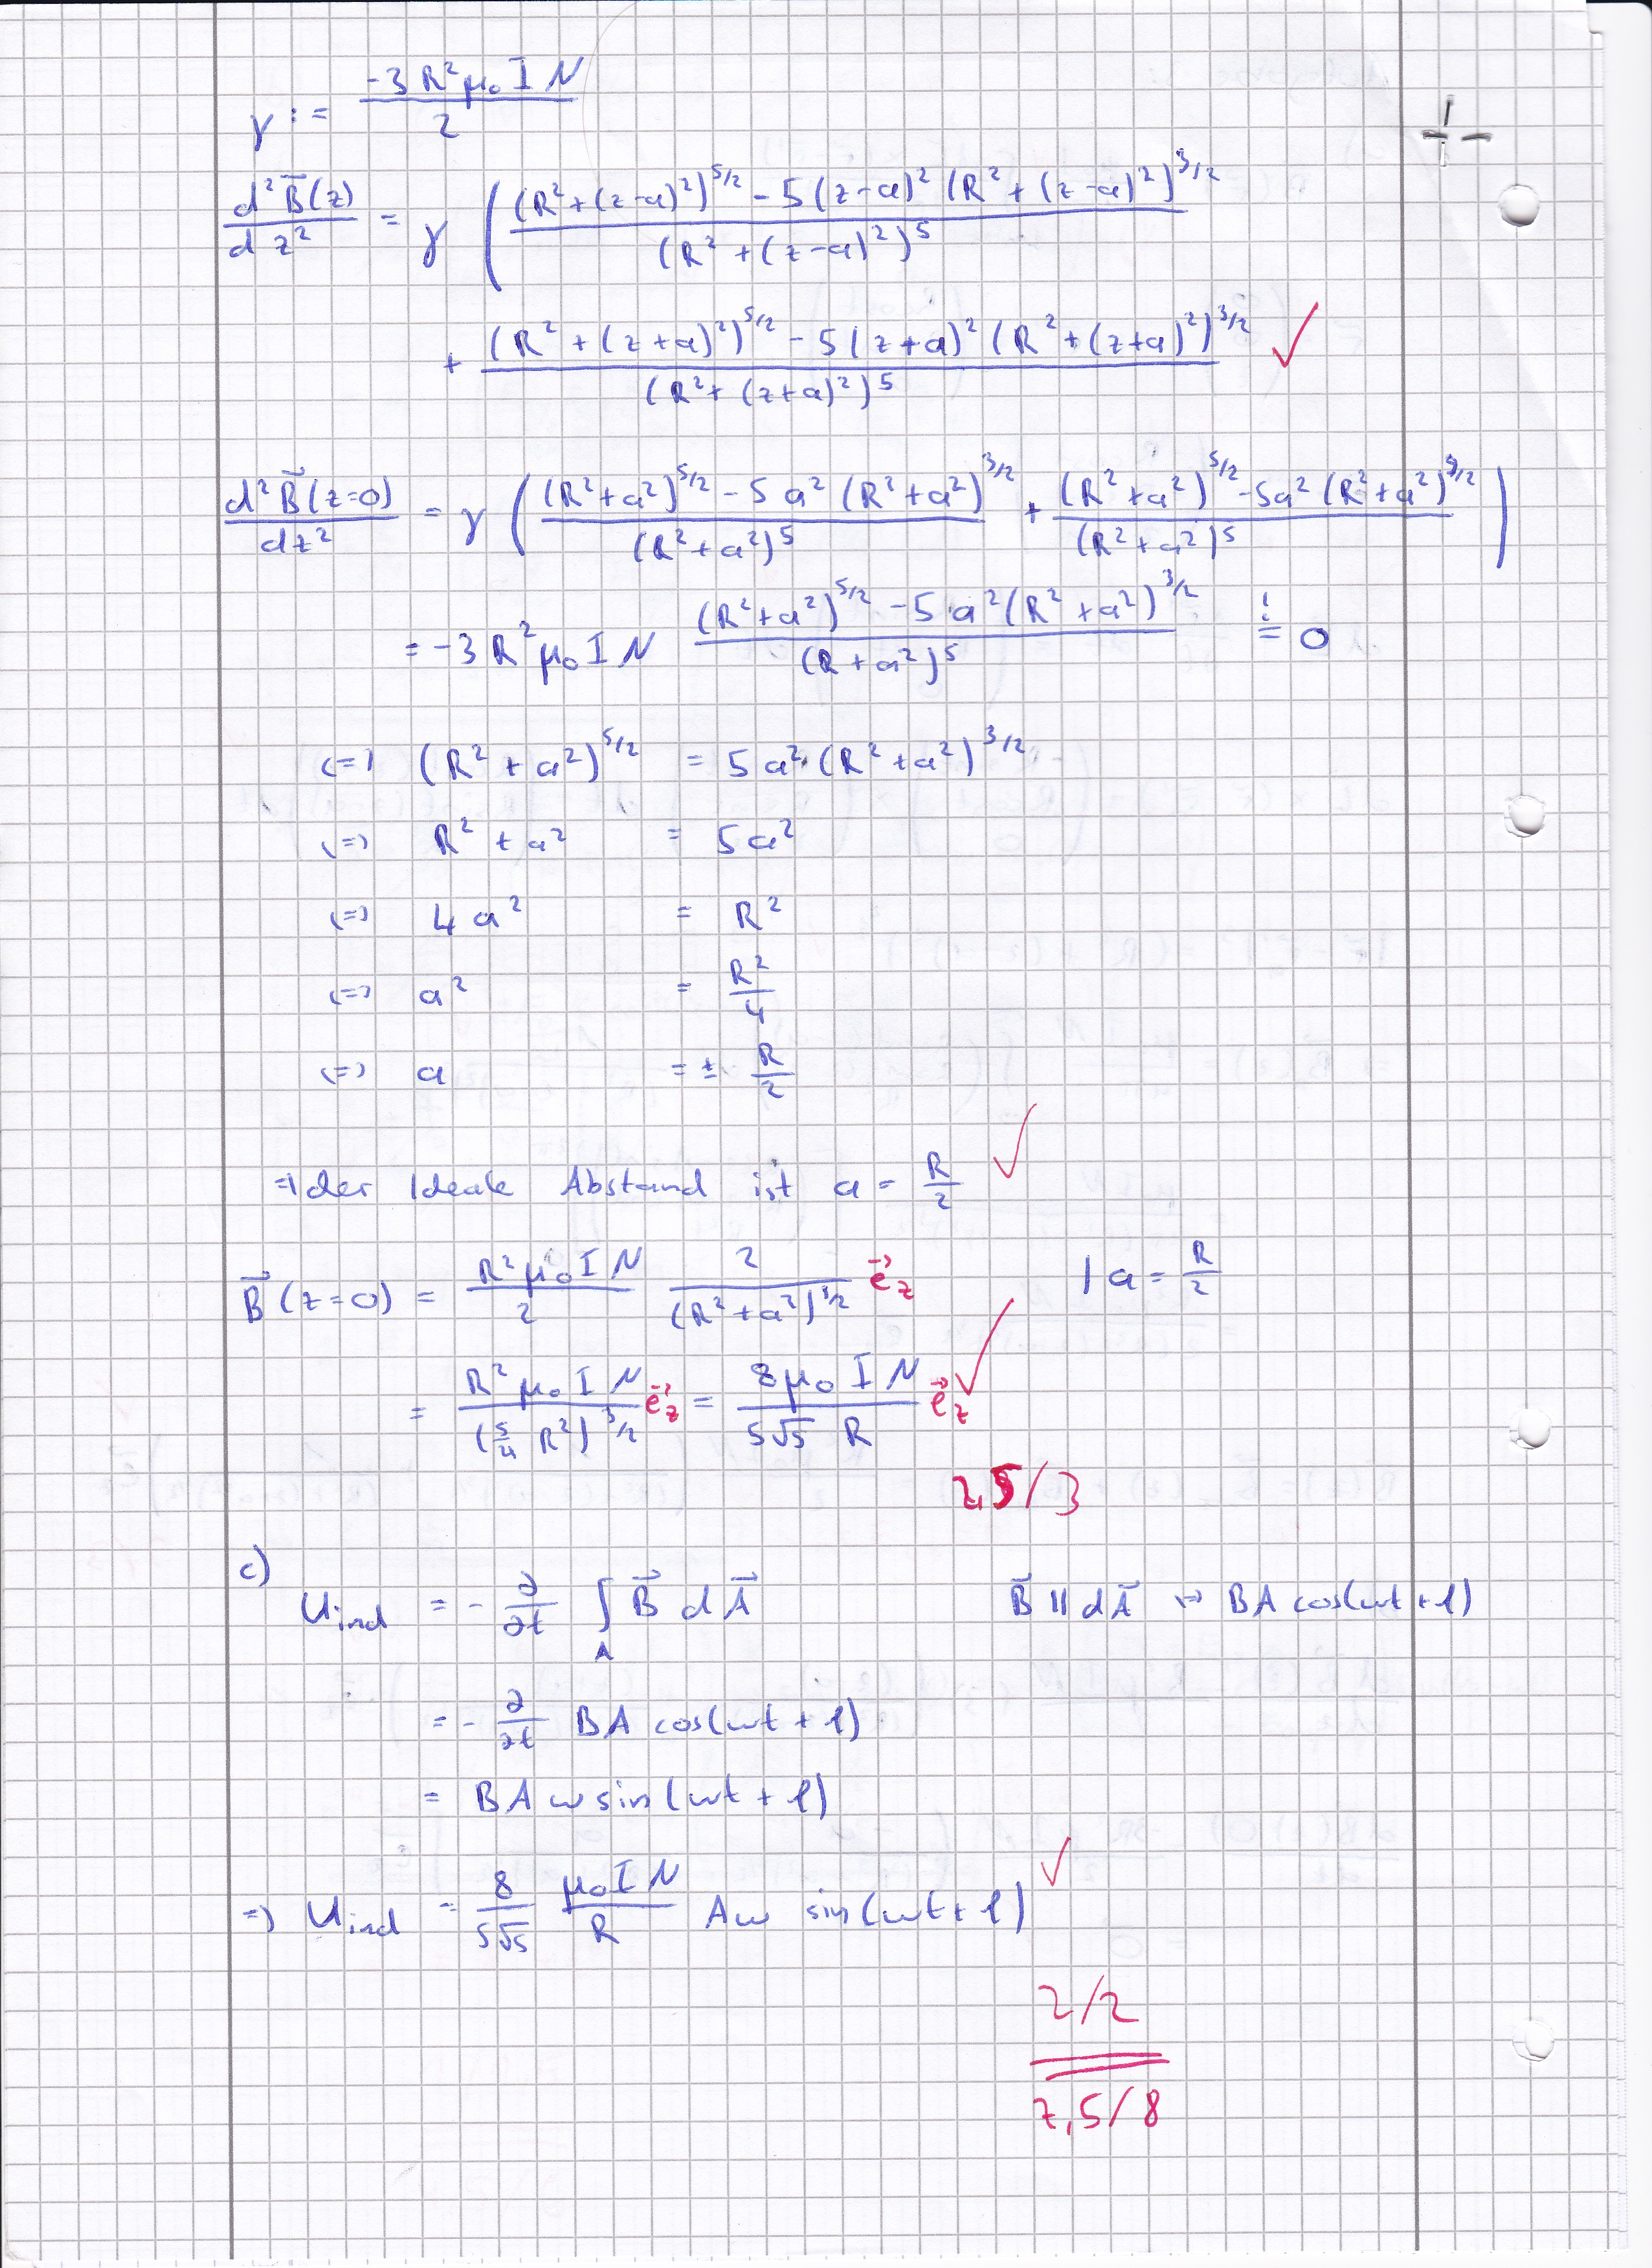 γ := (-3 R² μ₀ I N)/2
d²B⃗(z)/dz² = γ ( ((R²+(z-a)²)^5/2 - 5(z-a)² (R²+(z-a)²)^3/2)/(R²+(z-a)²)^5
+ ((R²+(z+a)²)^5/2 - 5(z+a)² (R²+(z+a)²)^3/2)/(R²+(z+a)²)^5 ✓
d²B⃗(z=0)/dz² = γ ( ((R²+a²)^5/2 - 5a² (R²+a²)^3/2)/(R²+a²)^5 + ((R²+a²)^5/2 - 5a² (R²+a²)^3/2)/(R²+a²)^5 )
= -3 R² μ₀ I N ((R²+a²)^5/2 - 5a² (R²+a²)^3/2)/(R+a²)^5 =! 0
<=> (R²+a²)^5/2 = 5a² · (R²+a²)^3/2
<=> R² + a² = 5a²
<=> 4a² = R²
<=> a² = R²/4
<=> a = ± R/2
=> der Ideale Abstand ist a = R/2 ✓
B⃗(z=0) = (R² μ₀ I N)/2 2/(R²+a²)^3/2 e⃗_z | a = R/2
= (R² μ₀ I N)/(5/4 R²)^3/2 e⃗_z = (8 μ₀ I N)/(5√5 R) e⃗_z ✓
2,5/3
c)
U_ind = - ∂/∂t ∫_A B⃗ dA⃗ B⃗ || dA⃗ => BA cos(ωt + φ)
= - ∂/∂t BA cos(ωt + φ)
= BA ω sin(ωt + φ)
=> U_ind = 8/(5√5) (μ₀ I N)/R Aω sin(ωt + φ) ✓
2/2
7,5/8